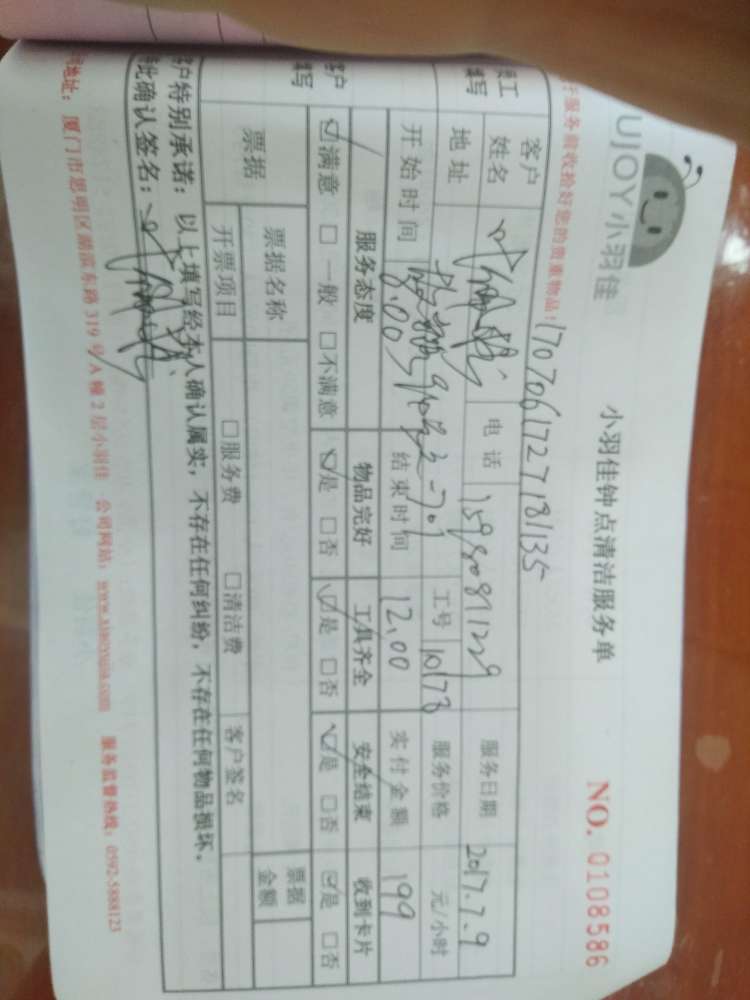 UJOY小羽佳
小羽佳钟点清洁服务单
NO. 0108586
服务验收拾好您的贵重物品!
1707061727181135
客户姓名 电话 15980811229 服务日期 2017.7.9
地址 工号 10178 服务价格 元/小时
开始时间 8:00 结束时间 12:00 实付金额 199
服务态度 物品完好 工具齐全 安全结束 收到卡片
☑满意 □一般 □不满意 ☑是 □否 ☑是 □否 ☑是 □否 ☑是 □否
票据 票据名称 票据金额
开票项目 □服务费 □清洁费 客户签名
客户特别承诺:以上填写经本人确认属实,不存在任何纠纷,不存在任何物品损坏。
此确认签名:
地址:厦门市思明区湖滨东路319号A幢2层小羽佳 公司网站:www.xiaoyujia.com 服务监督热线:0592-5888123